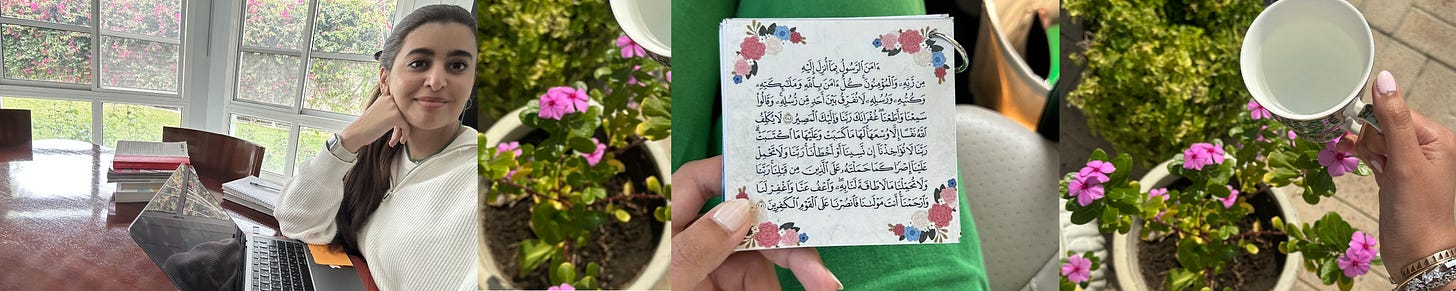 ءَامَنَ ٱلرَّسُولُ بِمَآ أُنزِلَ إِلَيْهِ
مِن رَّبِّهِۦ وَٱلْمُؤْمِنُونَ ۚ كُلٌّ ءَامَنَ بِٱللَّهِ وَمَلَٰٓئِكَتِهِۦ
وَكُتُبِهِۦ وَرُسُلِهِۦ لَا نُفَرِّقُ بَيْنَ أَحَدٍ مِّن رُّسُلِهِۦ ۚ وَقَالُوا۟
سَمِعْنَا وَأَطَعْنَا ۖ غُفْرَانَكَ رَبَّنَا وَإِلَيْكَ ٱلْمَصِيرُ ۝ لَا يُكَلِّفُ
ٱللَّهُ نَفْسًا إِلَّا وُسْعَهَا ۚ لَهَا مَا كَسَبَتْ وَعَلَيْهَا مَا ٱكْتَسَبَتْ ۗ
رَبَّنَا لَا تُؤَاخِذْنَآ إِن نَّسِينَآ أَوْ أَخْطَأْنَا ۚ رَبَّنَا وَلَا تَحْمِلْ
عَلَيْنَآ إِصْرًا كَمَا حَمَلْتَهُۥ عَلَى ٱلَّذِينَ مِن قَبْلِنَا ۚ رَبَّنَا
وَلَا تُحَمِّلْنَا مَا لَا طَاقَةَ لَنَا بِهِۦ ۖ وَٱعْفُ عَنَّا وَٱغْفِرْ لَنَا
وَٱرْحَمْنَآ ۚ أَنتَ مَوْلَىٰنَا فَٱنصُرْنَا عَلَى ٱلْقَوْمِ ٱلْكَٰفِرِينَ ۝